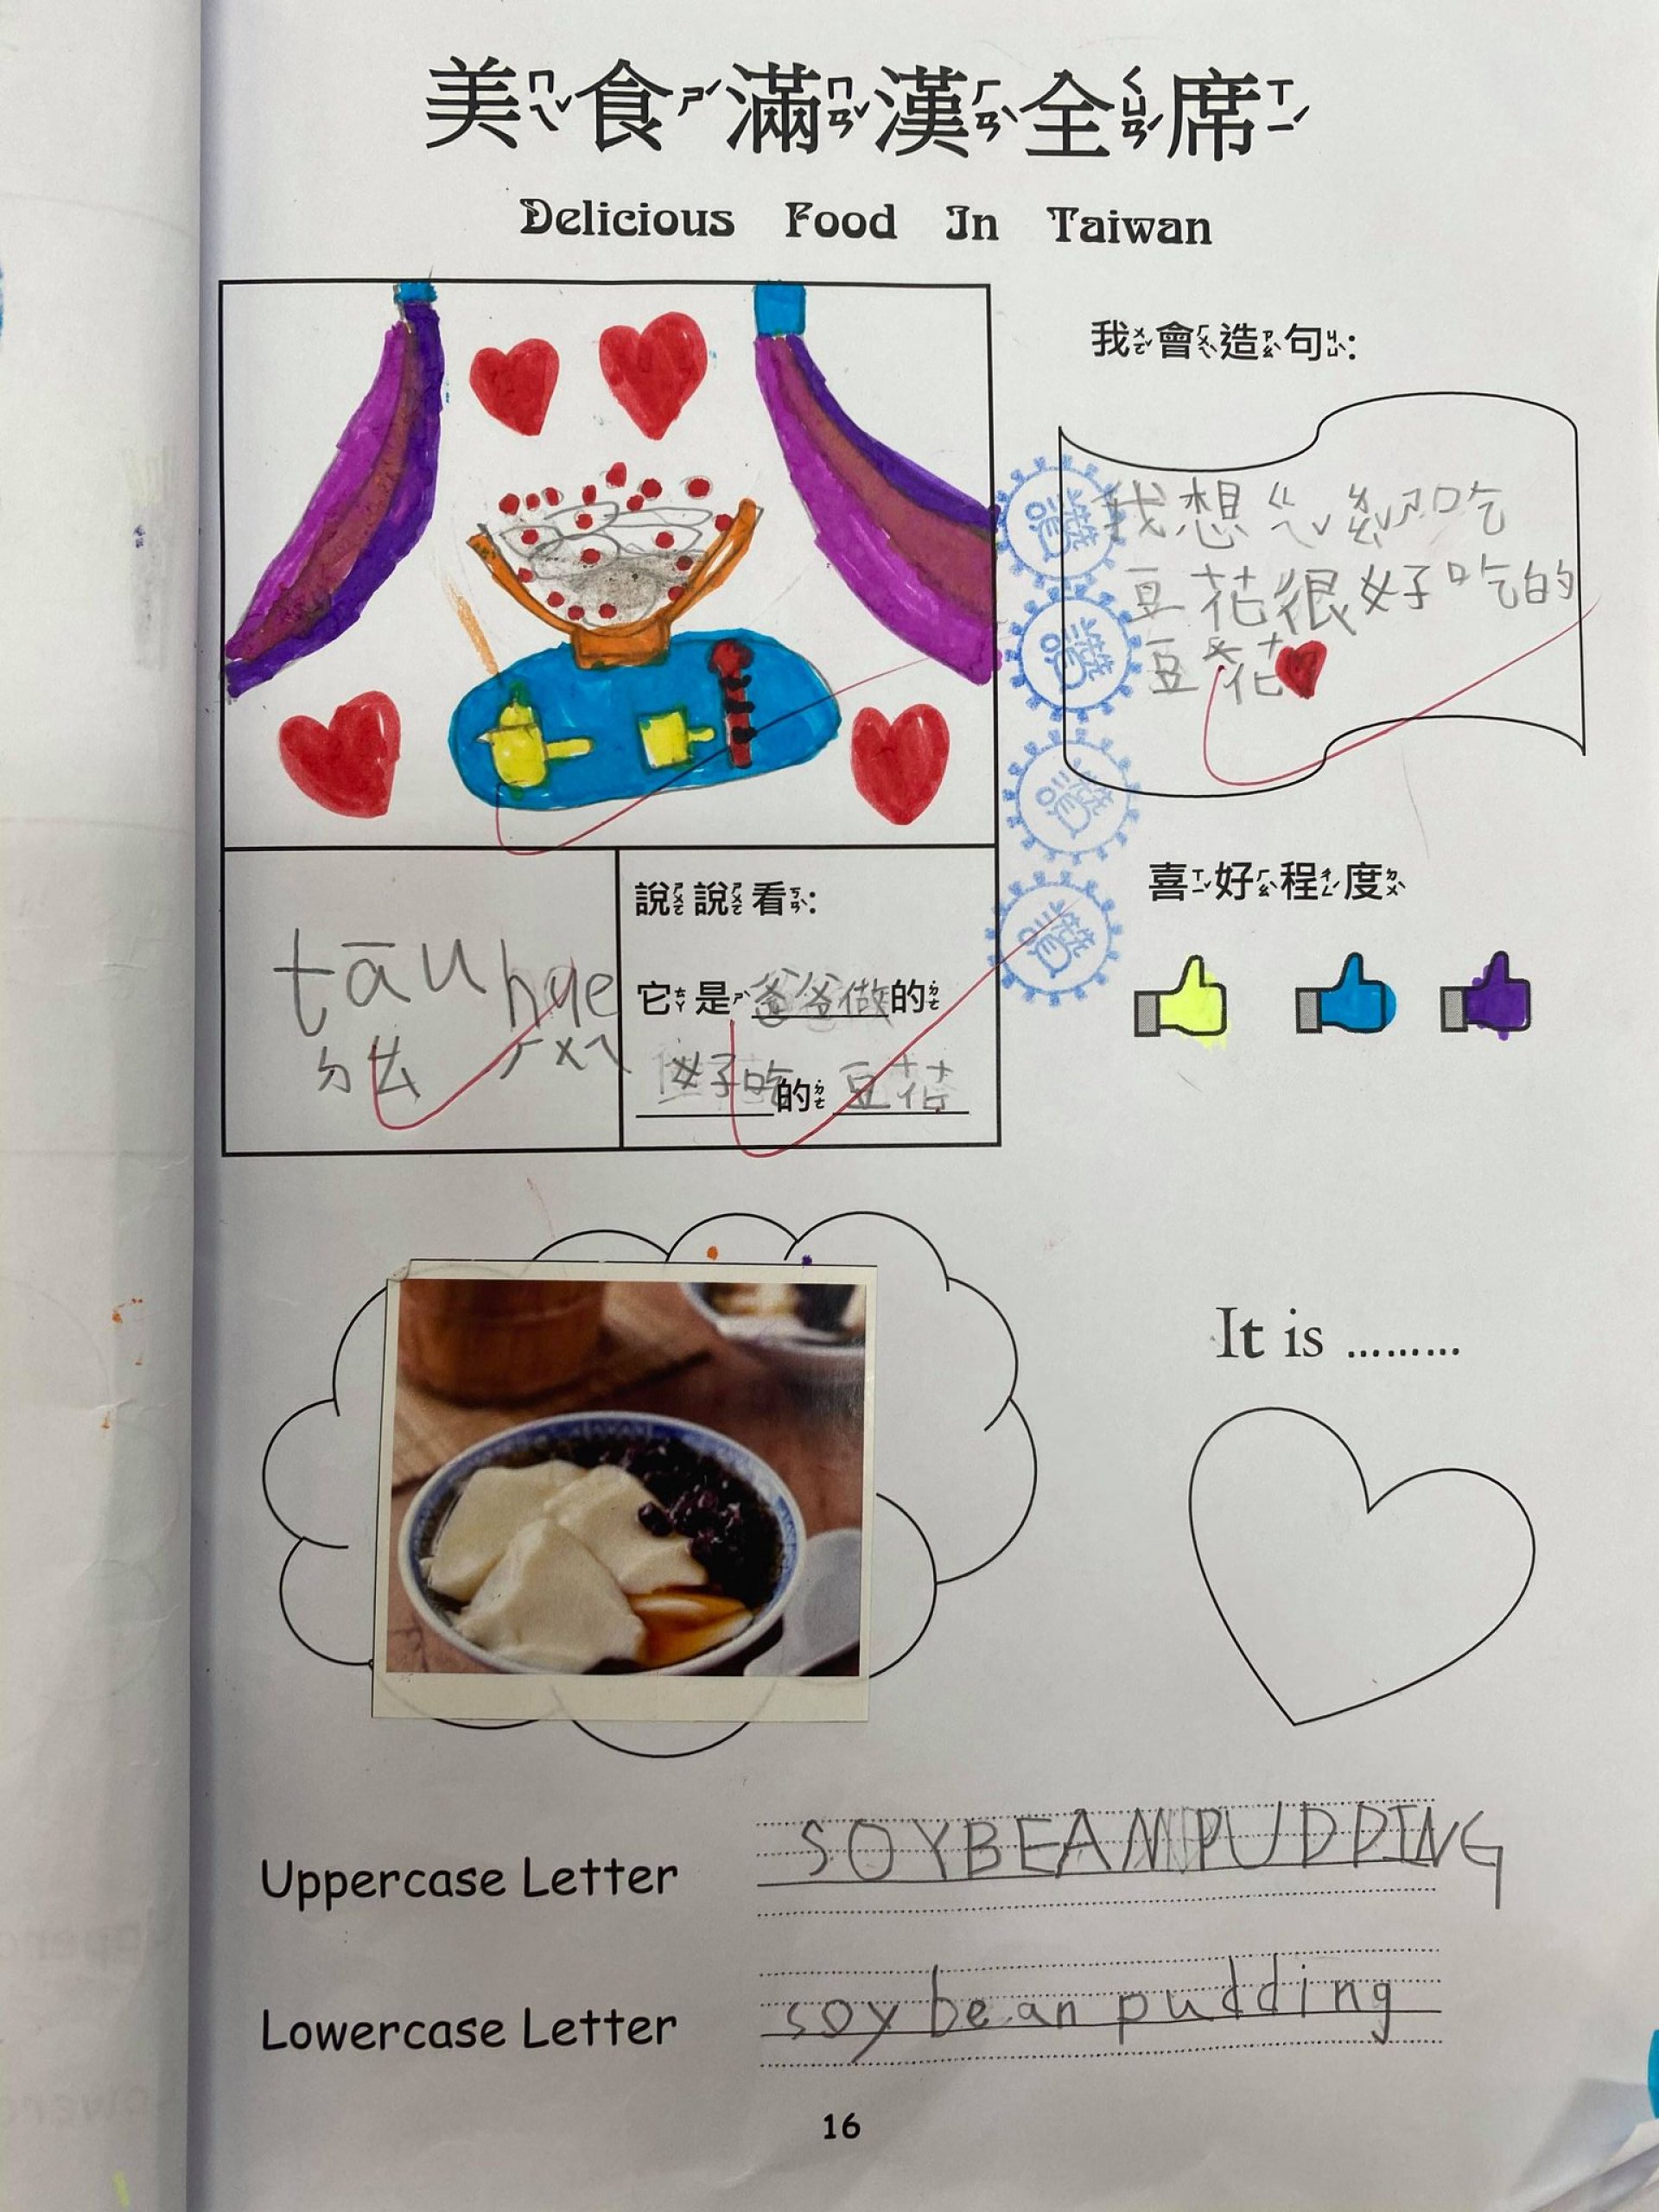 美ㄇㄟˇ食ㄕˊ滿ㄇㄢˇ漢ㄏㄢˋ全ㄑㄩㄢˊ席ㄒㄧˊ
Delicious Food In Taiwan
我ㄨㄛˇ會ㄏㄨㄟˋ造ㄗㄠˋ句ㄐㄩˋ:
我想ㄍㄟˇ
吃
豆花很好吃的
豆花
讚
讚
讚
讚
喜ㄒㄧˇ好ㄏㄠˋ程ㄔㄥˊ度ㄉㄨˋ
tāu hue
ㄉㄠ ㄏㄨㄟ
說ㄕㄨㄛ說ㄕㄨㄛ看ㄎㄢˋ:
它ㄊㄚ是ㄕˋ爸爸做的ㄉㄜ˙
好吃的ㄉㄜ˙豆花
It is .........
Uppercase Letter SOYBEAN PUDDING
Lowercase Letter soybean pudding
16